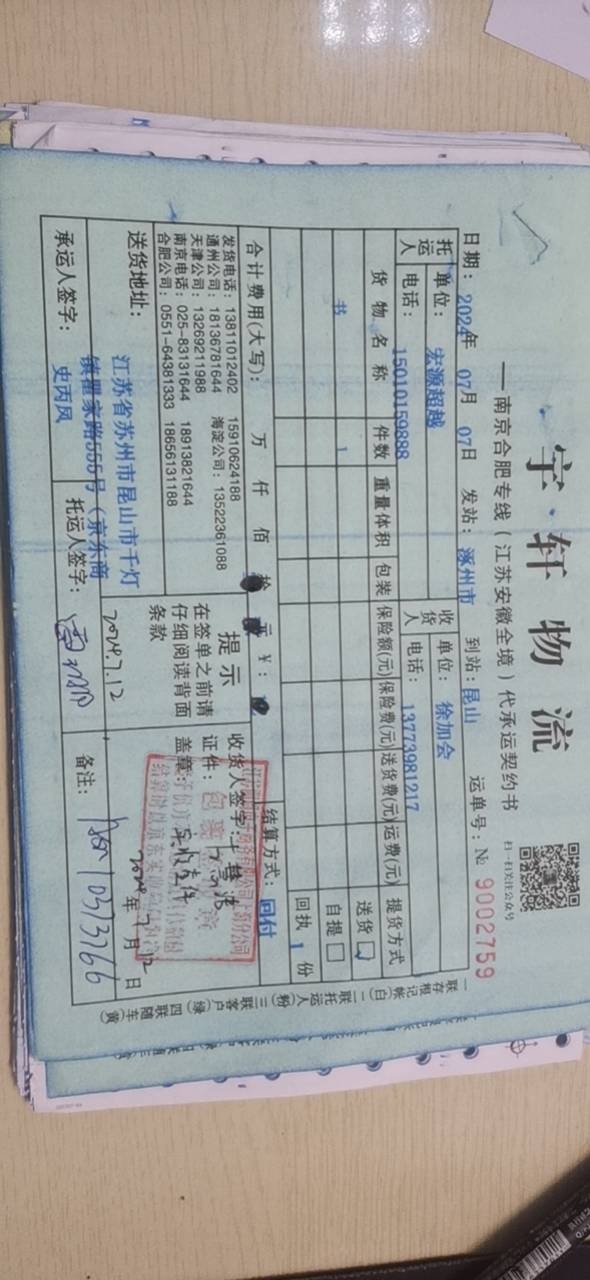 宇轩物流
扫一扫关注公众号
——南京合肥专线(江苏安徽全境)代承运契约书
日期: 2024年 07月 07日 发站: 涿州市 到站: 昆山 运单号: № 9002759
托运人 单位: 宏源超越 收货人 单位: 徐加会
电话: 15010159888 电话: 13773981217
货物名称 件数 重量体积 包装 保险额(元) 保险费(元) 送货费(元) 运费(元) 提货方式
书 1
送货 ☑
自提 □
回执 1 份
合计费用(大写): 万 仟 佰 拾 元 ¥: 结算方式: 回付
发货电话: 13811012402 15910624188
通州公司: 18136781644 海淀公司: 13522361088
天津公司: 13269211988
南京电话: 025-83131644 18913821644
合肥公司: 0551-64381333 18656131188
提示
在签单之前请
仔细阅读背面
条款
收货人签字:
证件:
盖章:
2024年7月12日
包装
送货地址: 江苏省苏州市昆山市千灯
镇瞿家路555号(京东商
2024.7.12
承运人签字: 史丙凤 托运人签字: 备注:
一联存根记帐(白) 二联托运人(粉) 三联客户(绿) 四联随车(黄)